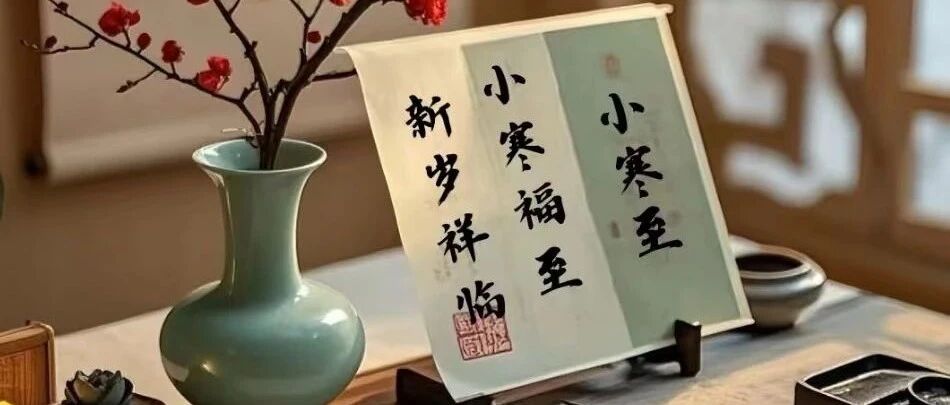 小寒至
小寒福至
新岁祥临